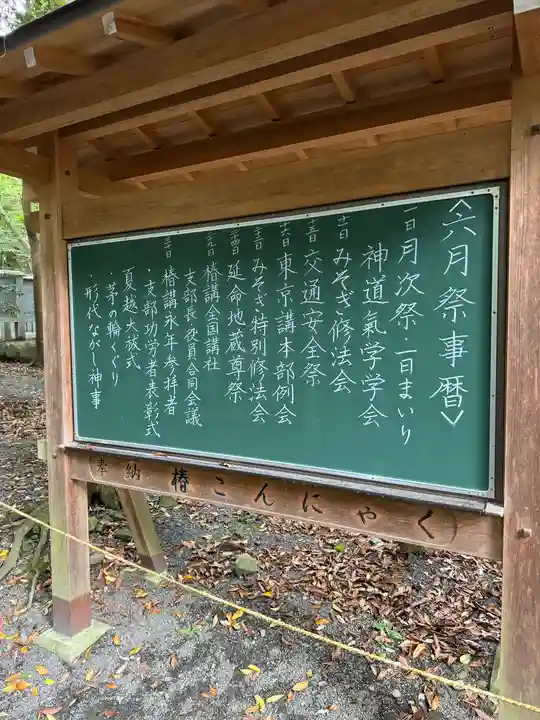 〈六月祭事暦〉
一日 月次祭・一日まいり
神道氣学学会
十一日 みそぎ修法会
十五日 交通安全祭
十六日 東京講本部例会
二十一日 みそぎ特別修法会
二十四日 延命地蔵尊祭
二十九日 椿講全国講社
支部長役員合同会議
三十日 椿講永年参拝者
・支部功労者表彰式
夏越大祓式
・茅の輪くぐり
・形代ながし神事
奉納 椿こんにゃく